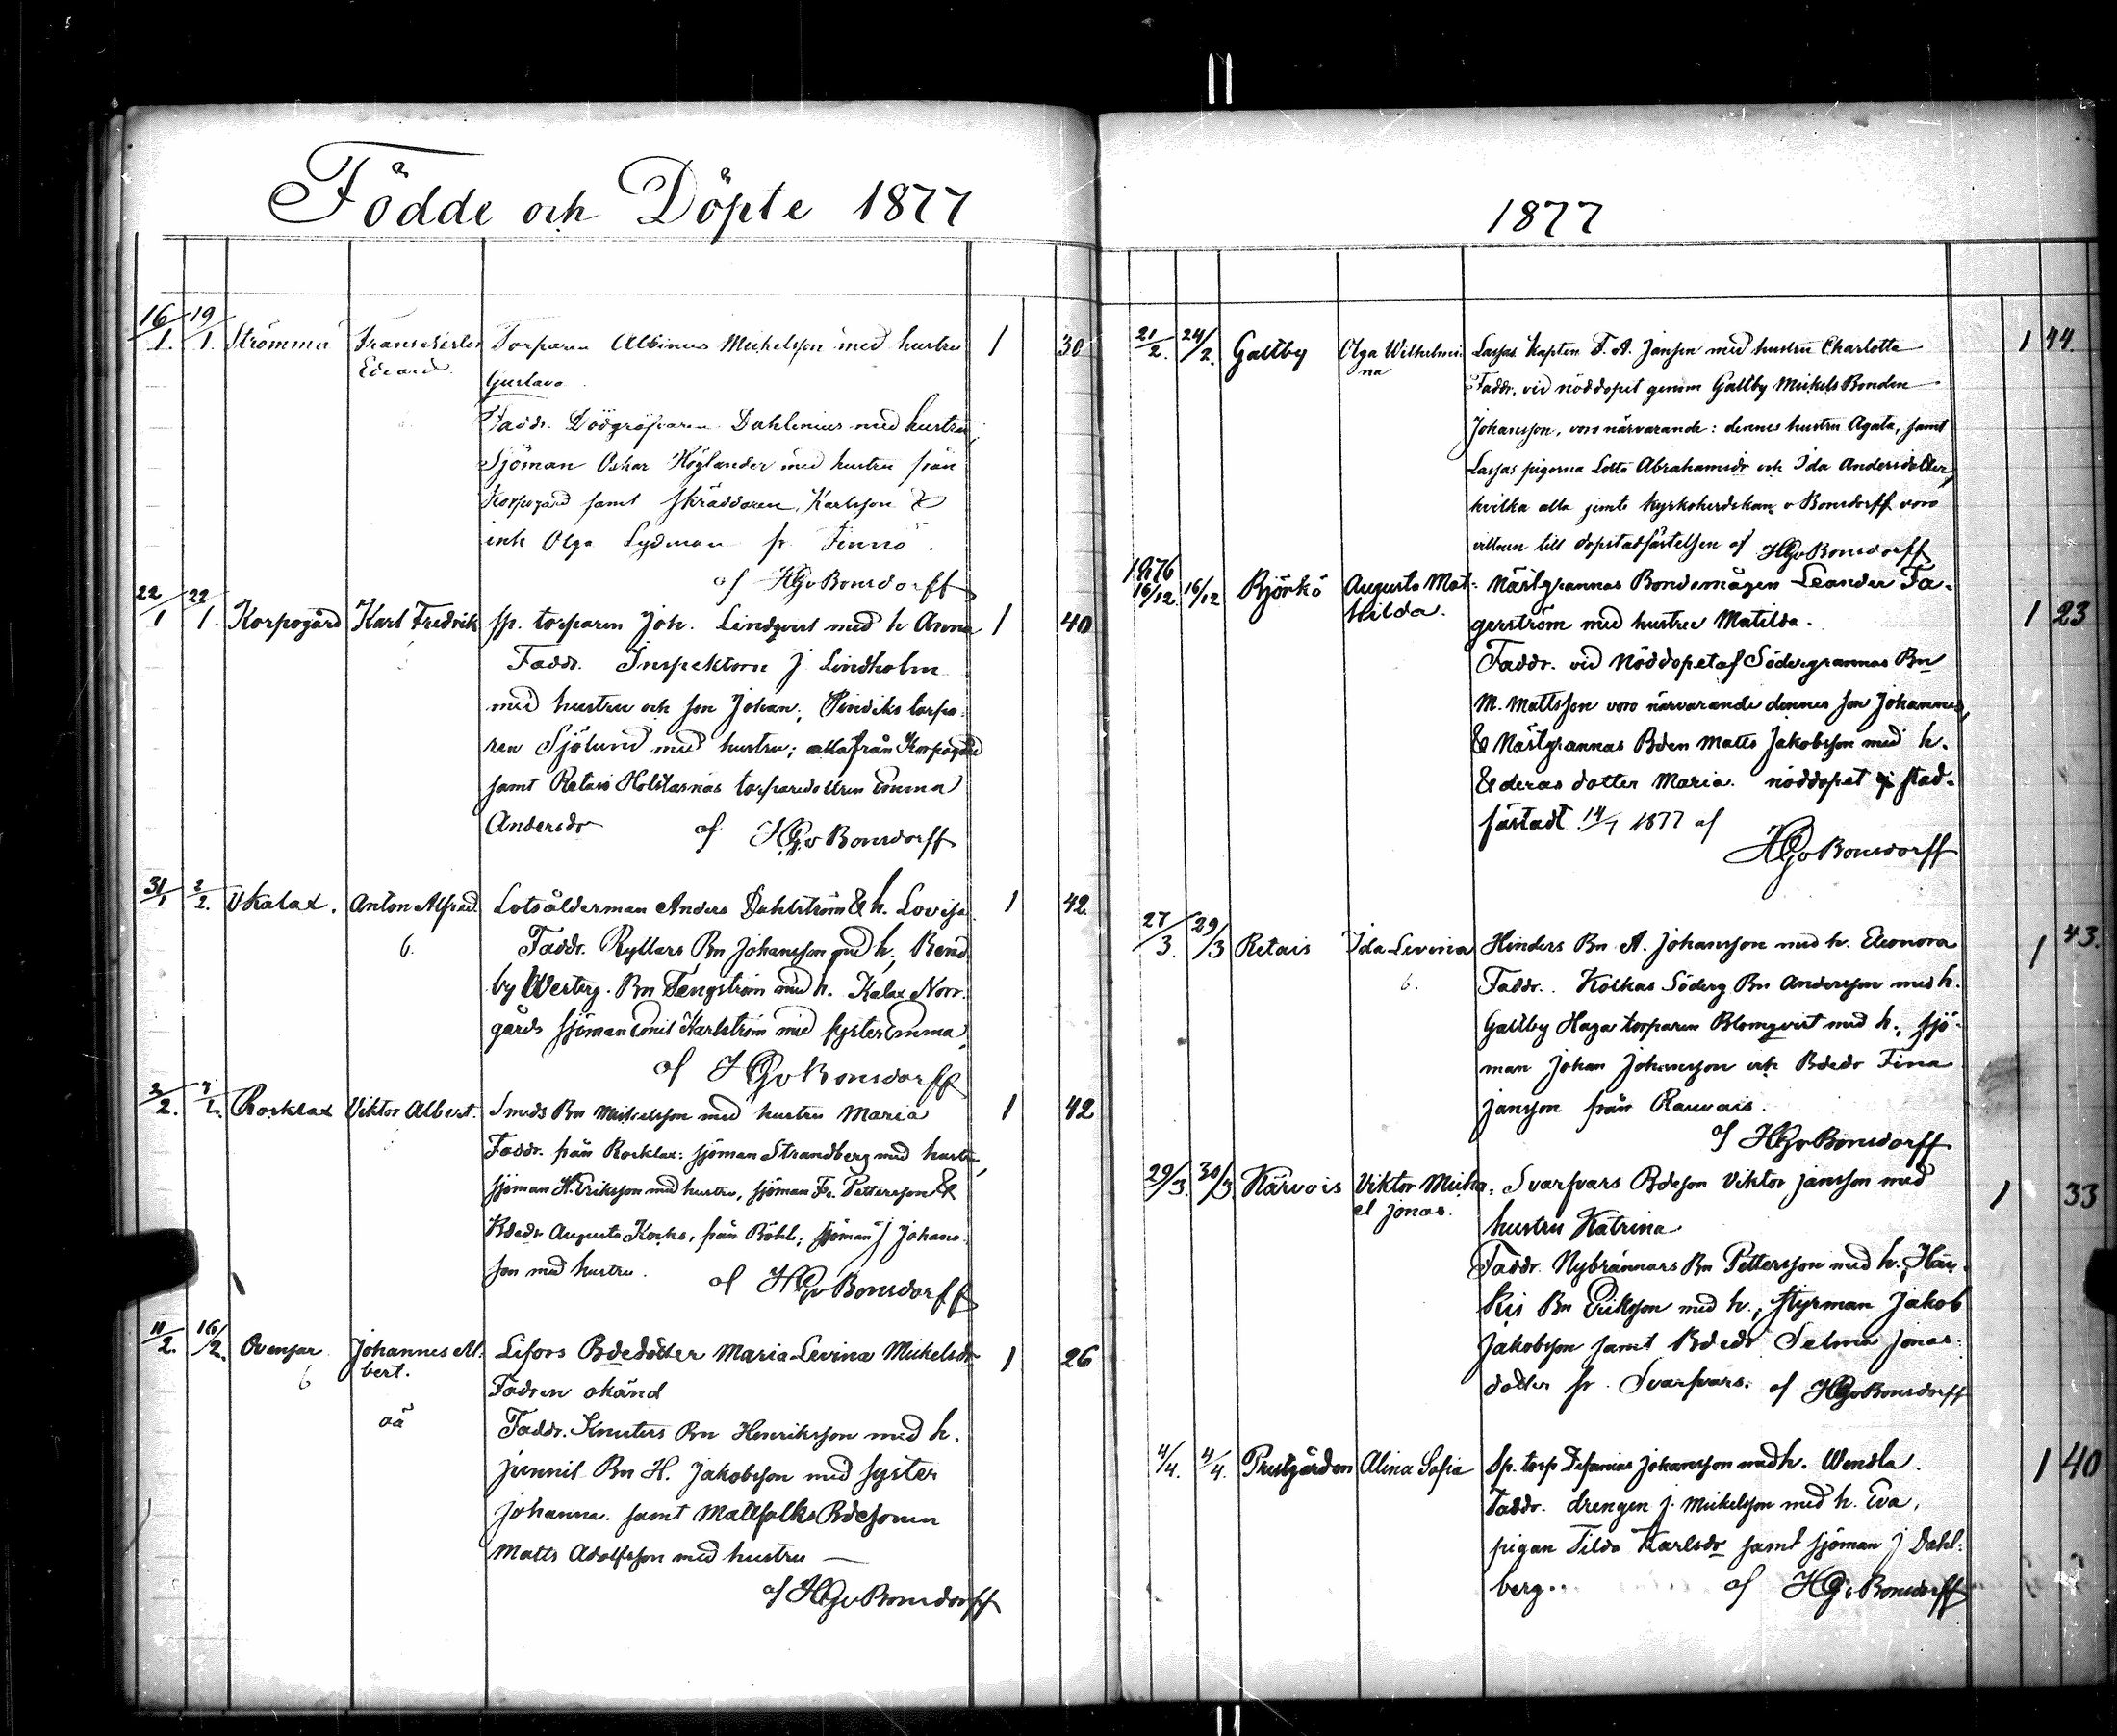 Födde och Döpte 1877
16/1. 19/1. Strömma Torparen Albinus Mickelsson med hustru 1 30
Edvard Gustava
Faddr. Dödgräfvaren Dahlenius med hustru,
Sjöman Oskar Höglander med hustru från
Korpogård samt skräddaren Karlsson &
inh Olga Lydman fr. Finnö.
af HGvBonsdorff
22/1 22/1. Korpogård Karl Fredrik sp. torparen Joh. Lindqvist med h Anna 1 40
Faddr. Inspektorn J. Lindholm
med hustru och son Johan; torpa-
ren Sjölund med hustru; alla från Korpogård
samt Retais Holstasnäs torparedottren Emma
Andersdr af HGvBonsdorff
31/1 2/2. Kalax. Anton Alfred. Lotsålderman Anders Dahlström & h. Lovisa. 1 42.
6. Faddr. Ryllars Bn Johansson med h., Rend
by Westerg. Bn Tengström med h. Kalax Norr-
gårds sjöman Emil Karlström med syster Emma,
af HGvBonsdorff
2/2. 7/2. Rosklax Viktor Albert. Smeds Bn Mickelsson med hustru Maria 1 42
Faddr. från Rosklax: sjöman Strandberg med hustru,
sjöman H. Eriksson med hustru, sjöman Fr. Pettersson &
Bdedr Augusta Korks, från Böhle; sjöman J Johans-
son med hustru. af HGvBonsdorff
11/2. 16/2. Ovensor Johannes Al- Lifors Bdedotter Maria Levina Mickelsdr 1 26
6 bert. Fadren okänd
oä Faddr. Knuters Bn Henriksson med h.
Junnil Bn H. Jakobsson med syster
Johanna. samt Mattfolks Bdesonen
Matts Adolfsson med hustru —
af HGvBonsdorff
1877
21/2. 24/2. Galtby Olga Wilhelmi- Lassas Kapten F. A. Jansson med hustru Charlotta 1 44
na Faddr. vid nöddopet genom Galtby Mickels Bonden
Johansson, voro närvarande: dennes hustru Agata, samt
Lassas pigorna Lotta Abrahamsdr och Ida Andersdotter,
hvilka alla jemte kyrkoherdskan v Bonsdorff voro
vittnen till dopstadfästelsen af HGvBonsdorff
1876
16/12. 16/12 Björkö Augusta Mat- Nästgrannas Bondemågen Leander Fa-
hilda. gerström med hustru Matilda. 1 23
Faddr. vid Nöddopet af Södergrannas Bn
M. Mattsson voro närvarande dennes son Johannes,
& Nästgrannas Bden Matts Jakobsson med h.
& deras dotter Maria. nöddopet stad-
fästadt 14/1 1877 af
HGvBonsdorff
27/3. 29/3 Retais Ida Levina Hinders Bn A. Johansson med h. Eleonora 1 43.
6. Faddr. Kolkas Söderg Bn Andersson med h.
Galtby Haga torparen Blomqvist med h., sjö-
man Johan Johansson och Bdedr Fina
Jansson från Rauvais.
af HGvBonsdorff
29/3. 30/3 Kärvois Viktor Mick- Svarfvars Bdeson Viktor Jansson med 1 33
el Jonas. hustru Katrina
Faddr. Nybrännars Bn Pettersson med h.,
Bn Eriksson med h., styrman Jakob
Jakobsson samt Bdedr Selma Jonas-
dotter fr. Svarfvars. af HGvBonsdorff
4/4. 4/4. Prestgården Alina Sofia Sp. torp Johansson med h. Wendla. 1 40
Faddr. drengen J. Mickelsson med h. Eva,
pigan Tilda Karlsdr samt sjöman J Dahl-
berg. af HGvBonsdorff